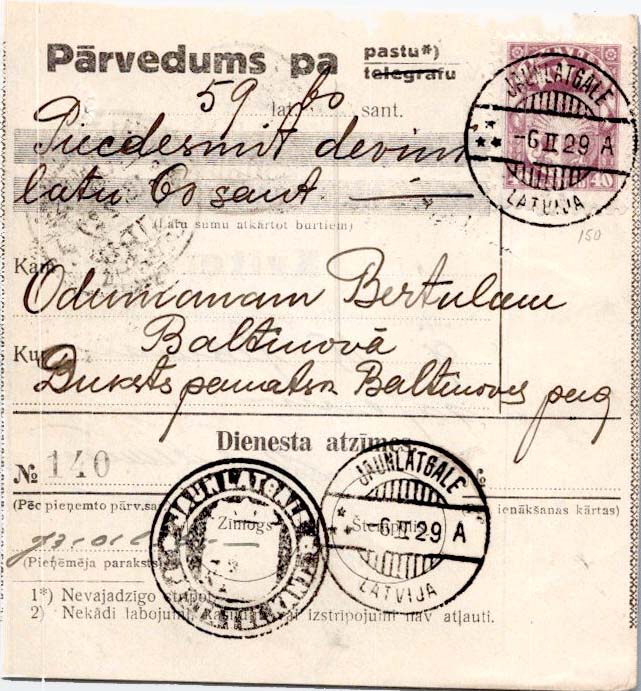 Pārvedums pa pastu*)
telegrafu
59 lat 60 sant.
JAUNLATGALE
-6 II 29 A
LATVIJA
40
Piecdesmit deviņi
latu 60 sant.
(Latu sumu atkārtot burtiem)
150
Kam
Odumanam Bertulam
Baltinovā
Kur
Duksts pamatsk Baltinoves pag
Dienesta atzīmes
№ 140
JAUNLATGALE
-6 II 29 A
LATVIJA
JAUNLATGALE
(Pēc pieņemto pārv. sa
Zīmogs
Štempelis
ienākšanas kārtas)
(Pieņēmēja paraksts)
1*) Nevajadzīgo strīpot.
2) Nekādi labojumi, vai izstrīpojumi nav atļauti.